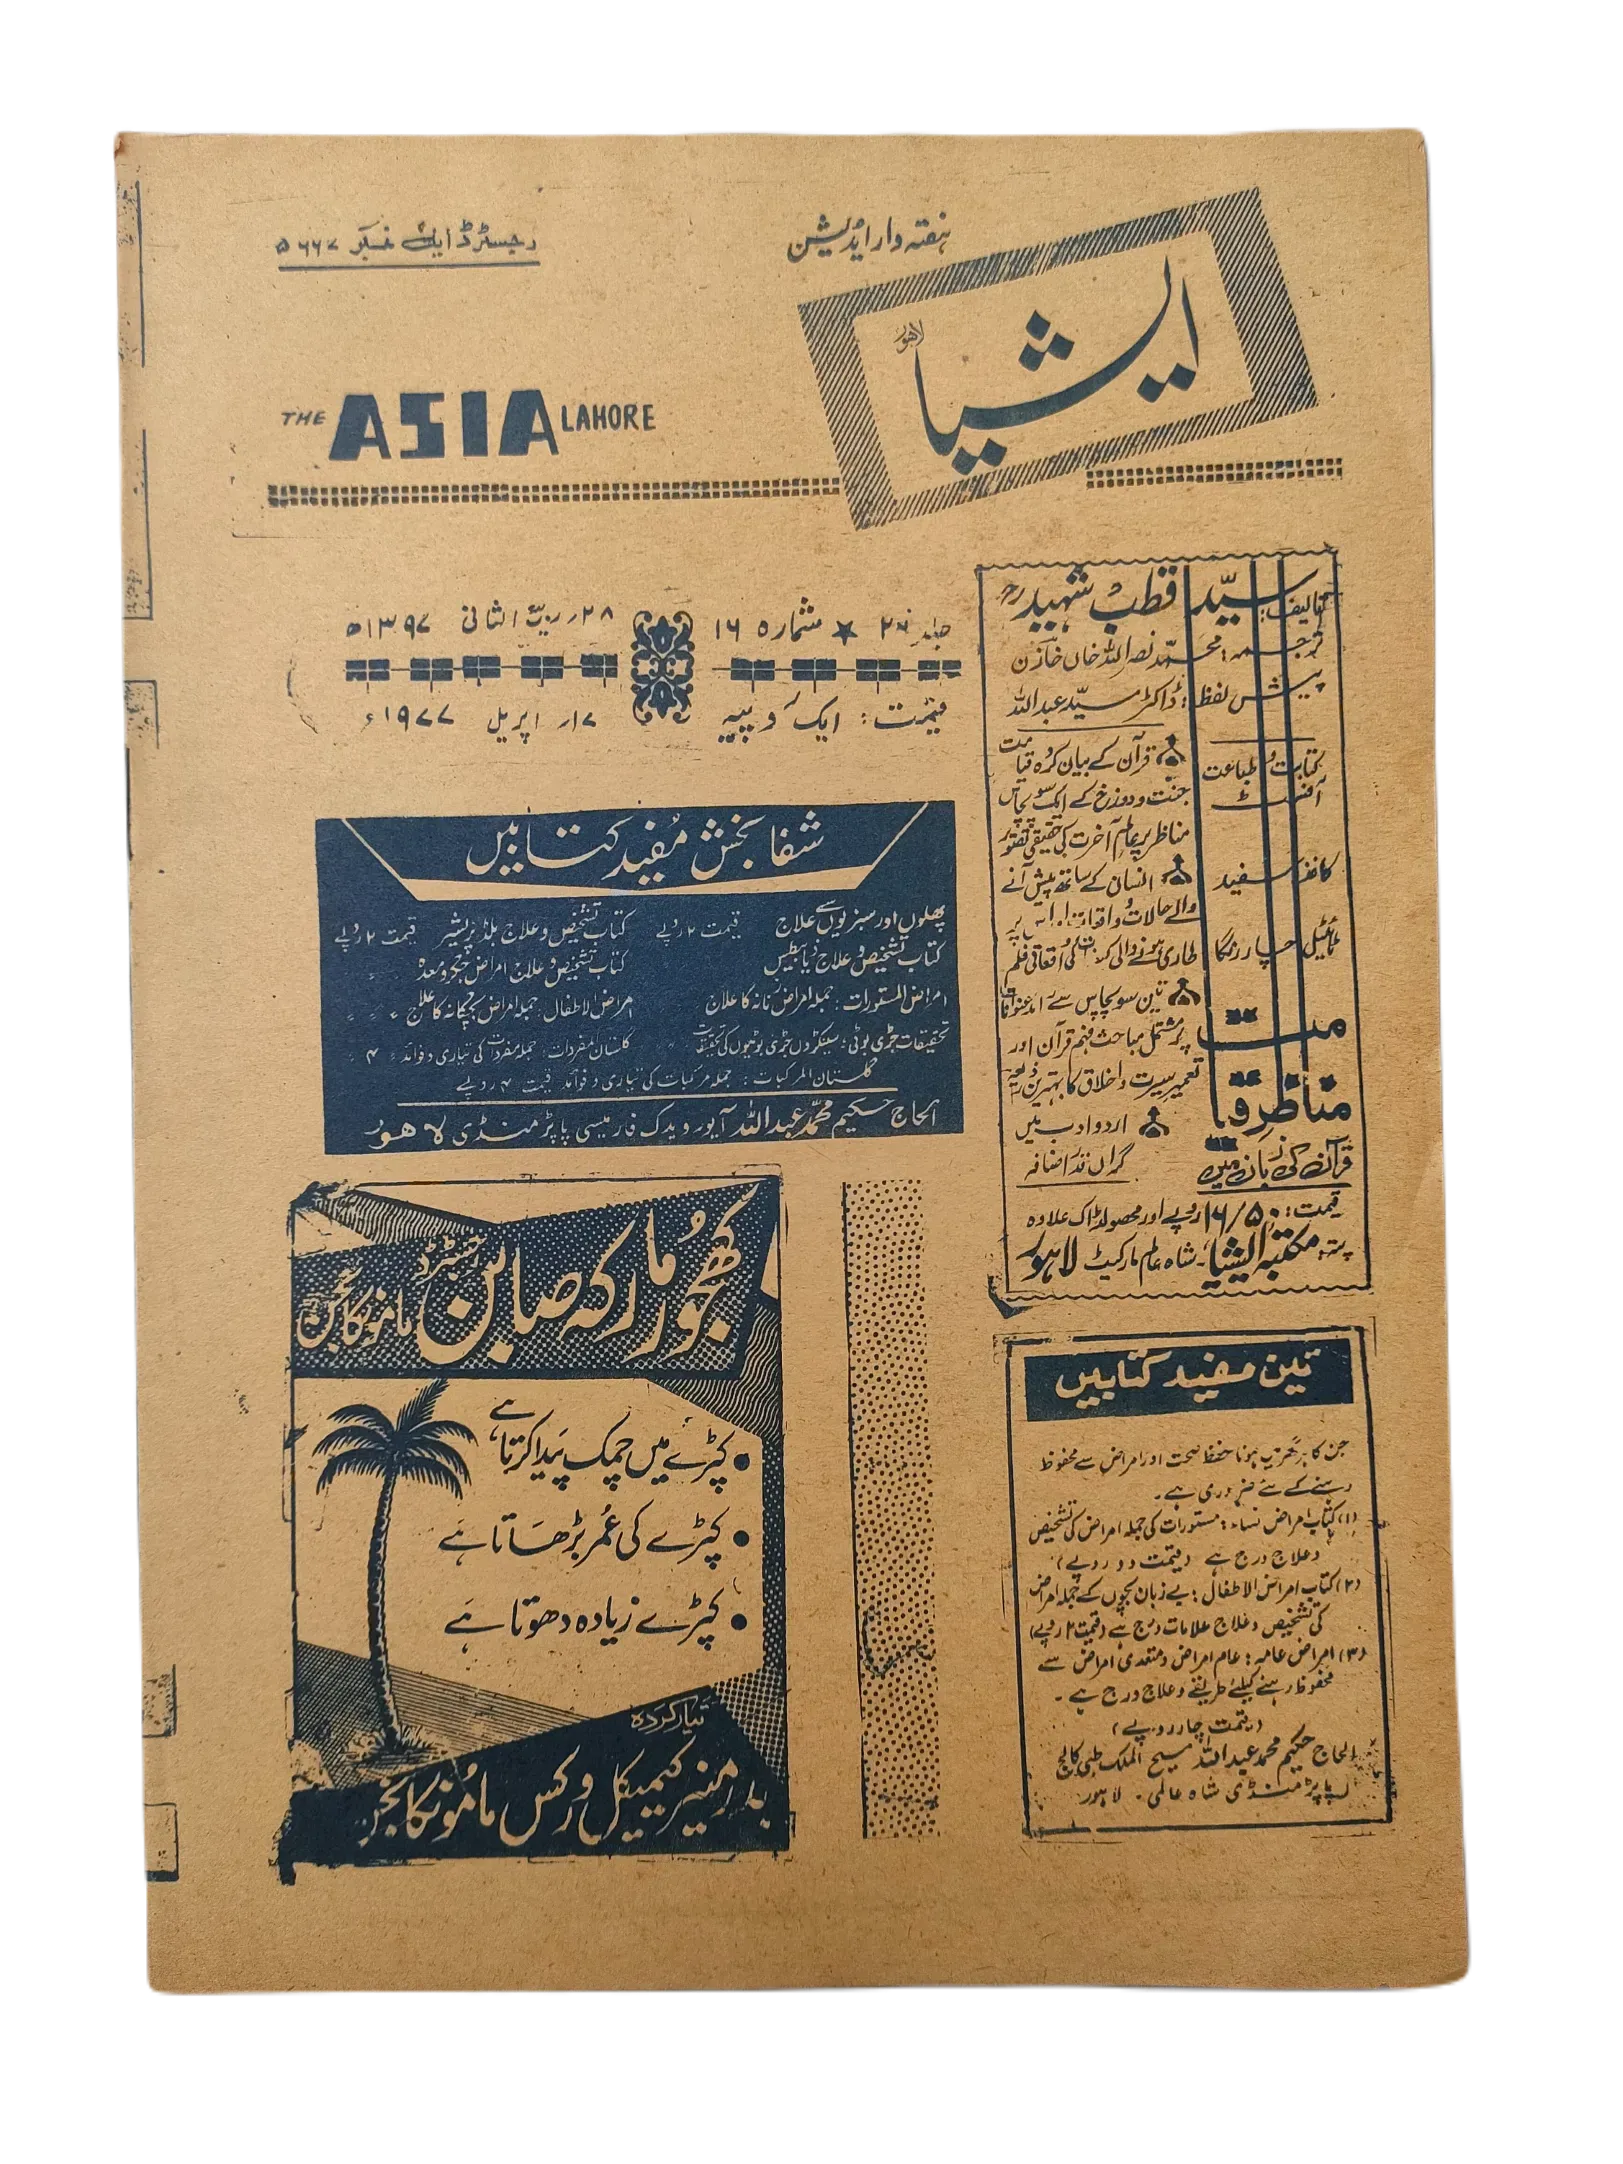 ہفتہ وار ایڈیشن
رجسٹرڈ ایل نمبر ۵۶۶۷
ایشیا
لاہور
THE ASIA LAHORE
جلد ۲۶ ★ شمارہ ۱۶
۲۸ ربیع الثانی ۱۳۹۷ھ
قیمت: ایک روپیہ
۱۷ اپریل ۱۹۷۷ء
تالیف: سیّد قطب شہید رح
ترجمہ: محمّد نصر اللہ خاں خازن
پیش لفظ: ڈاکٹر سیّد عبداللہ
کتابت و طباعت
آفسٹ
کاغذ سفید
ٹائیٹل چار رنگا
قرآن کے بیان کردہ قیامت
جنت و دوزخ کے ایک سو پچاس
مناظر پر عالم آخرت کی حقیقی تصویر
انسان کے ساتھ پیش آنے
والے حالات و واقعات اور اس پر
طاری ہونے والی کی واقعاتی فلم
تین سو پچاس سے زائد عنوانات
پر مشتمل مباحث فہم قرآن اور
تعمیر سیرت و اخلاق کا بہترین ذریعہ
اردو ادب میں
گراں قدر اضافہ
مناظرِ قیامت
قرآن کی زبان میں
قیمت: ۱۶/۵۰ روپے اور محصولڈاک علاوہ
پتہ: مکتبہ ایشیا۔ شاہ عالم مارکیٹ لاہور
شفا بخش مفید کتابیں
پھلوں اور سبزیوں سے علاج قیمت ۲ روپے
کتاب تشخیص و علاج بلڈ پریشر قیمت ۲ روپے
کتاب تشخیص و علاج ذیابیطس
کتاب تشخیص و علاج امراض جگر و معدہ
امراض المستورات: جملہ امراض زنانہ کا علاج
امراض الاطفال: جملہ امراض بچگانہ کا علاج
تحقیقات جڑی بوٹی: سینکڑوں جڑی بوٹیوں کی تحقیقات
گلستان المفردات: جملہ مفردات کی تیاری و فوائد ۴
گلستان المرکبات: جملہ مرکبات کی تیاری و فوائد قیمت ۴ روپے
الحاج حکیم محمّد عبداللہ آیورویدک فارمیسی پاپڑ منڈی لاہور
کھجور مارکہ صابن رجسٹرڈ ماموںکانجن
• کپڑے میں چمک پیدا کرتا ہے
• کپڑے کی عمر بڑھاتا ہے
• کپڑے زیادہ دھوتا ہے
تیار کردہ
بدر منیر کیمیکل ورکس ماموںکانجن
تین مفید کتابیں
جن کا ہر گھر میں ہونا حفظ صحت اور امراض سے محفوظ
رہنے کے لئے ضروری ہے۔
(۱) کتاب امراض نساء: مستورات کی جملہ امراض کی تشخیص
و علاج درج ہے (قیمت دو روپے)
(۲) کتاب امراض الاطفال: بے زبان بچوں کے جملہ امراض
کی تشخیص و علاج علامات درج ہے (قیمت ۲ روپے)
(۳) امراض عامہ: عام امراض و متعدی امراض سے
محفوظ رہنے کیلئے طریقے و علاج درج ہے۔
(قیمت چار روپے)
الحاج حکیم محمد عبداللہ مسیح الملک طبی کالج
پاپڑ منڈی شاہ عالمی۔ لاہور